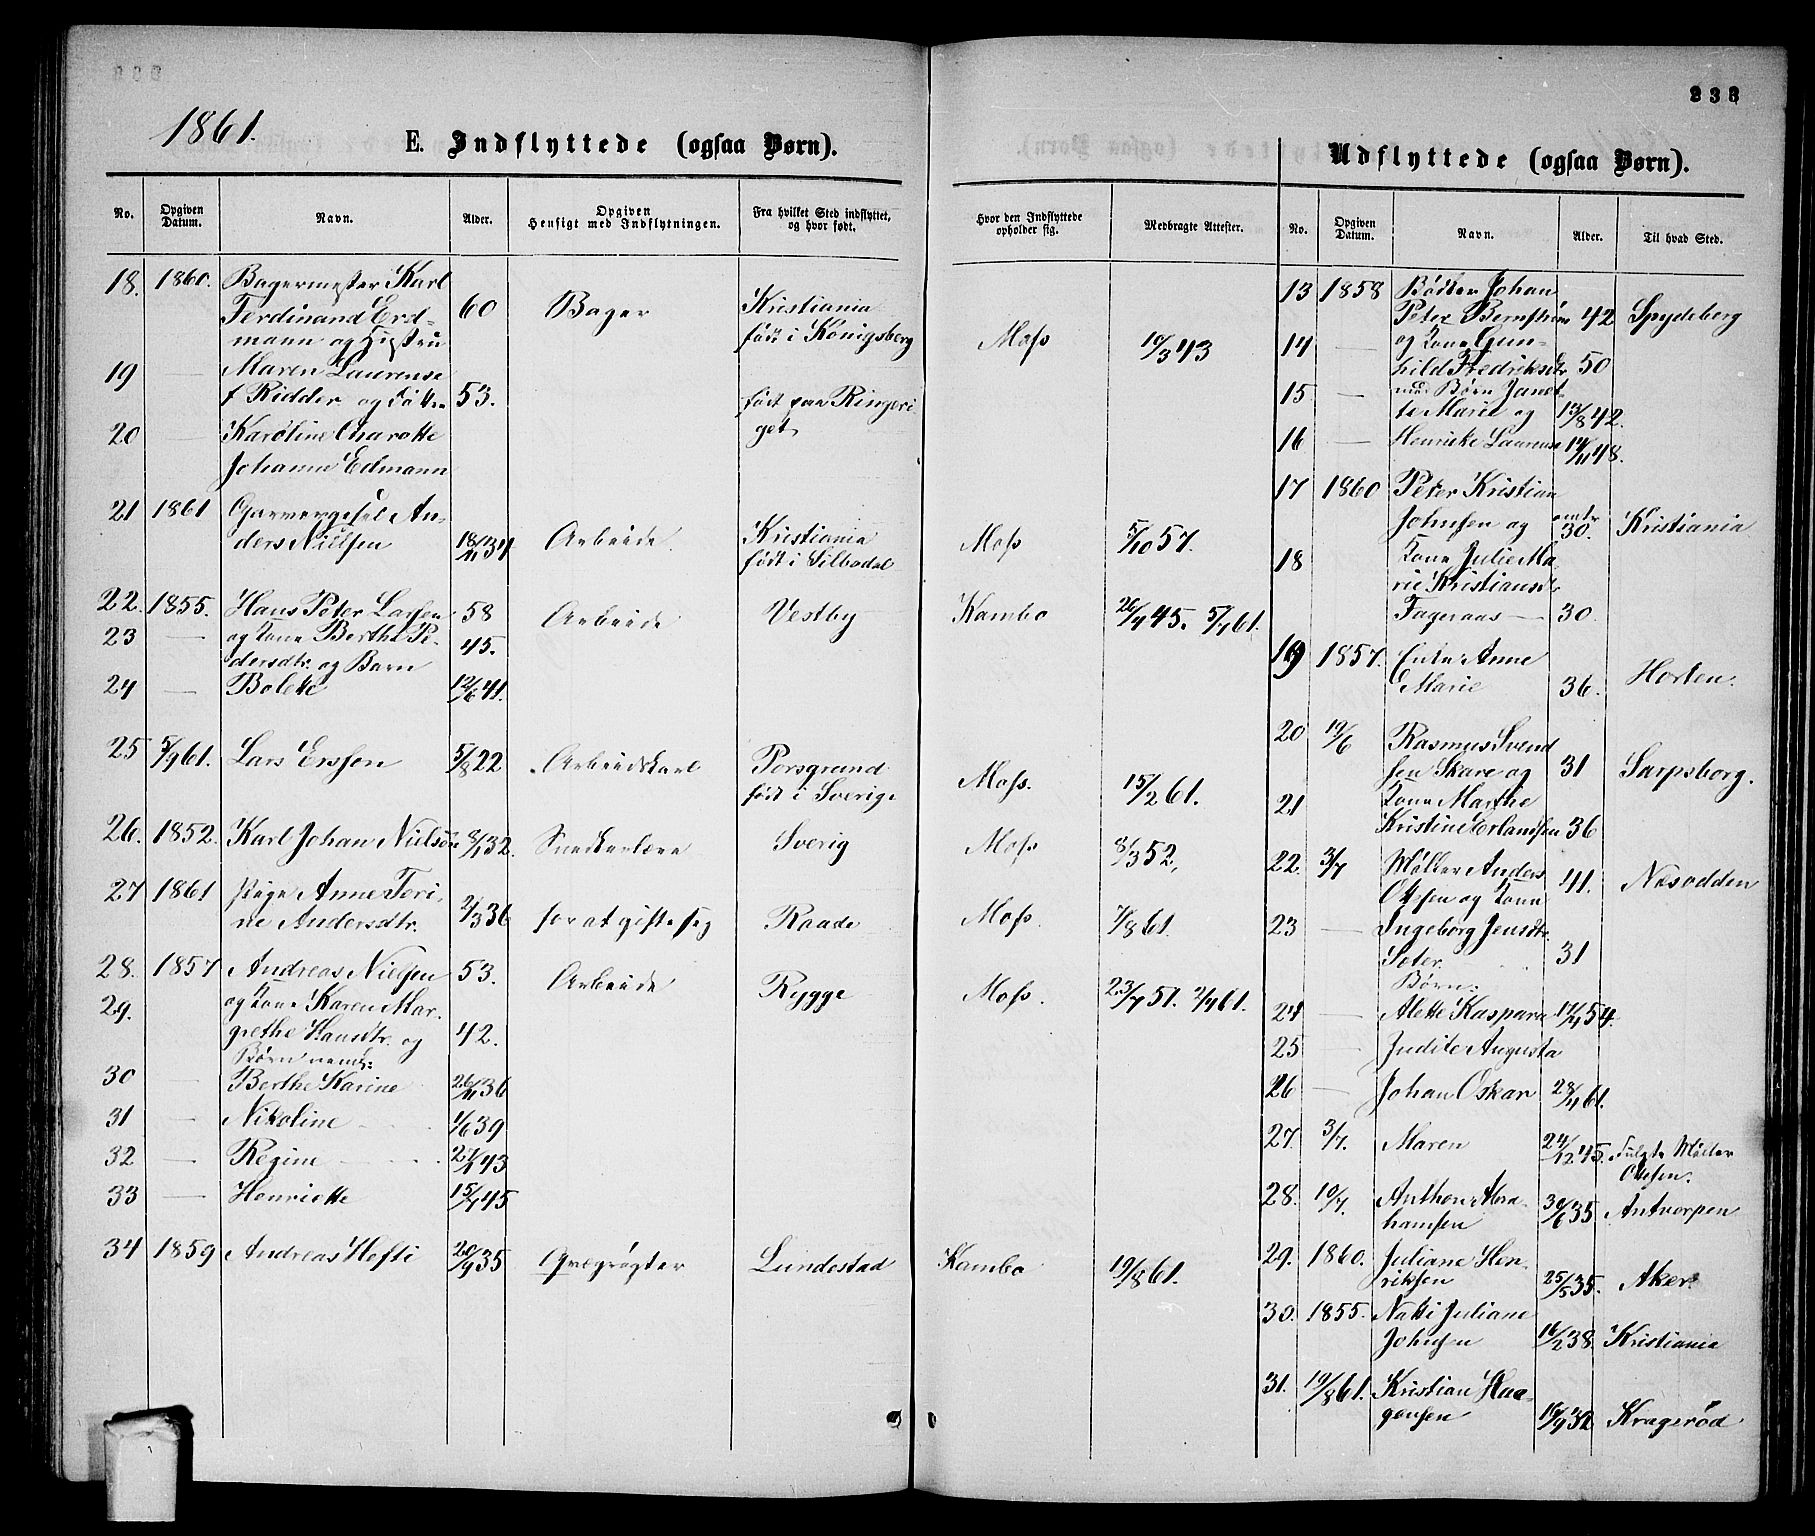 1861.
E. Indflyttede (ogsaa Børn).
No. Opgiven Datum. Navn. Alder. Opgiven Hensigt med Indflytningen. Fra hvilket Sted indflyttet, og hvor født.
18. 1860. Bagermester Karl
Ferdinand Erd- 60 Bager Kristiania
mann og Hustru født i Königsberg
19 — Maren Laurense
f Ridder og Datter 53. født paa Ringeri
20 — Karoline Charotte get
Johanne Edmann
21 1861 Garversvend An-
ders Nielsen 18/11 34 Arbeide. Kristiania
født i Silbodal
22. 1855. Hans Peter Larsen 58 Arbeide Vestby
23 — og Kone Berthe Pe-
dersdtr. og Barn 45.
24 — Bolette 12/6 41.
25 5/9 61. Lars Ersson 5/8 22 Arbeidskarl Porsgrund
født i Sverige
26. 1852. Karl Johan Nielsøn 8/1 32. Snedkerlære Sverig
27 1861 Pige Anne Teri-
ne Andersdtr. 2/3 36 for at gifte sig Raade
28. 1857 Andreas Nielsen 53. Arbeide Rygge
29. og Kone Karen Mar-
grethe Hansdtr. og 42.
Børn neml:
30 — Berthe Karine 26/11 36
31 — Nikoline 1/6 39
32 — Regine 21/1 43
33 — Henriette 15/7 45
34 1859 Andreas Hefti 20/9 35 Qvægrøgter Lundestad
233
Udflyttede (ogsaa Børn).
Hvor den Indflyttede opholder sig. Medbragte Attester. No. Opgiven Datum. Navn. Alder. Til hvad Sted.
13 1858 Bødker Johan
Peter Bernstrøm 42 Spydeberg
Moss 10/3 43 14 — og Kone Gun-
hild Fredriksdtr 50
15 — med Børn Janet-
te Marie og 13/8 42.
16 — Henrikke Laurense 14/11 48.
17 1860 Peter Kristian
Johnsen og omtr 30. Kristiania
Moss 5/10 57. 18 Kone Julie Ma-
rie Kristiansdtr
Kambo 26/4 45. 5/7 61. Fageraas — 30.
19 1857. Enke Anne
Marie 36. Horten.
20 19/6 Rasmus Svend
sen Skare og 31 Sarpsborg.
Moss. 15/2 61. 21 Kone Marthe
Kristine Erlandsen 36
Moss 8/3 52, 22. 3/7 Møller Anders
Olsen og Kone 41. Nesodden
Moss. 7/8 61. 23 — Ingeborg Jensdtr.
Soter. 31
Børn:
Moss. 23/7 51. 2/7 61. 24 — Alette Kaspara 17/4 54.
25 — Judite Augusta
26 — Johan Oskar 28/4 61.
27. 3/7. Maren 24/12 45. Fulgte Møller
Olesen.
28. 10/7. Anthon Abra-
hamsen 30/6 35 Antverpen
Kambo 19/8 61. 29. 1860. Juliane Hen-
riksen 25/5 35. Aker.
30. 1855. Natti Juliane
Johnsen 16/2 38. Kristiania
31. 19/8 61. Kristian Haa-
gensen 16/9 32 Kragerød